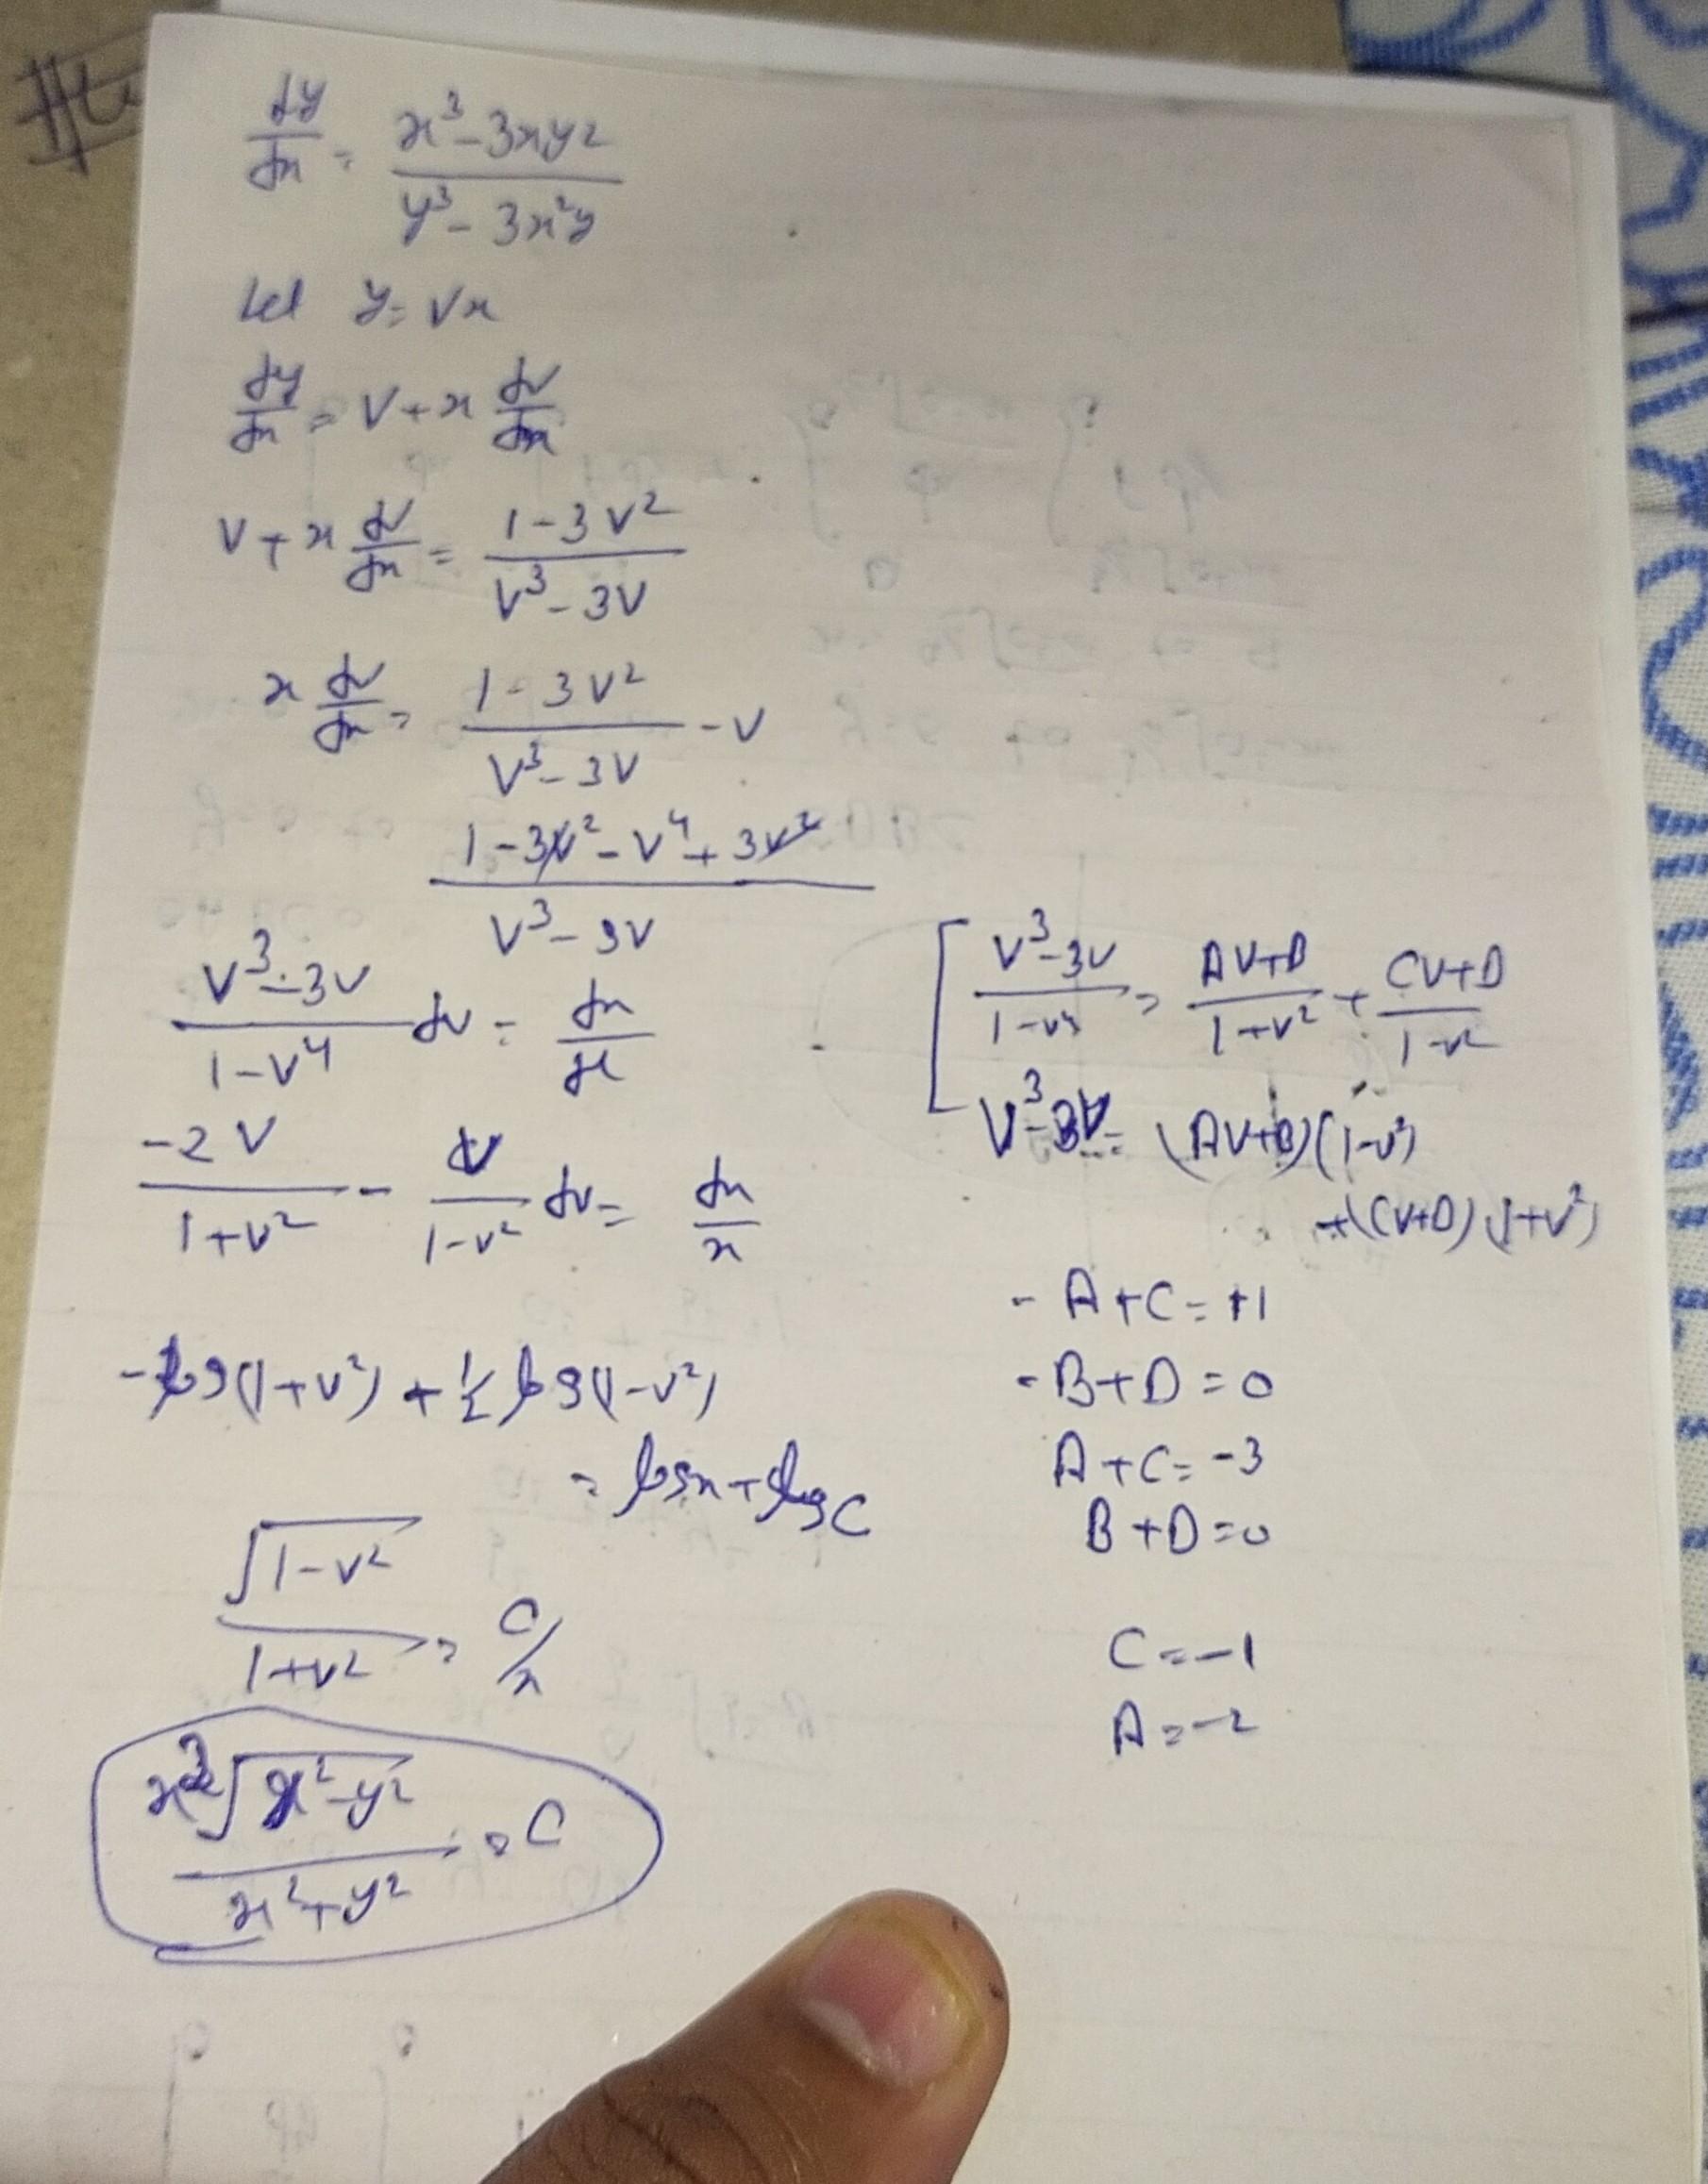 Hw
dy/dx = (x³-3xy2)/(y³-3x²y)
Let y = vx
dy/dx = v+x dv/dx
v+x dv/dx = (1-3v²)/(v³-3v)
x dv/dx = (1-3v²)/(v³-3v) -v
(1-3v²-v⁴+3v²)/(v³-3v)
(v³-3v)/(1-v⁴) dv = dx/x
(-2v)/(1+v²) - v/(1-v²) dv = dx/x
-log(1+v²) + 1/2 log(1-v²)
= logx + logC
√(1-v²)/(1+v²) = C/x
√(x²-y²)/(x²+y²) = C
[(v³-3v)/(1-v⁴) = (Av+B)/(1+v²) + (Cv+D)/(1-v²)
v³-3v = (Av+B)(1-v²)
+(Cv+D)(1+v²)
-A+C=+1
-B+D=0
A+C=-3
B+D=0
C=-1
A=-2